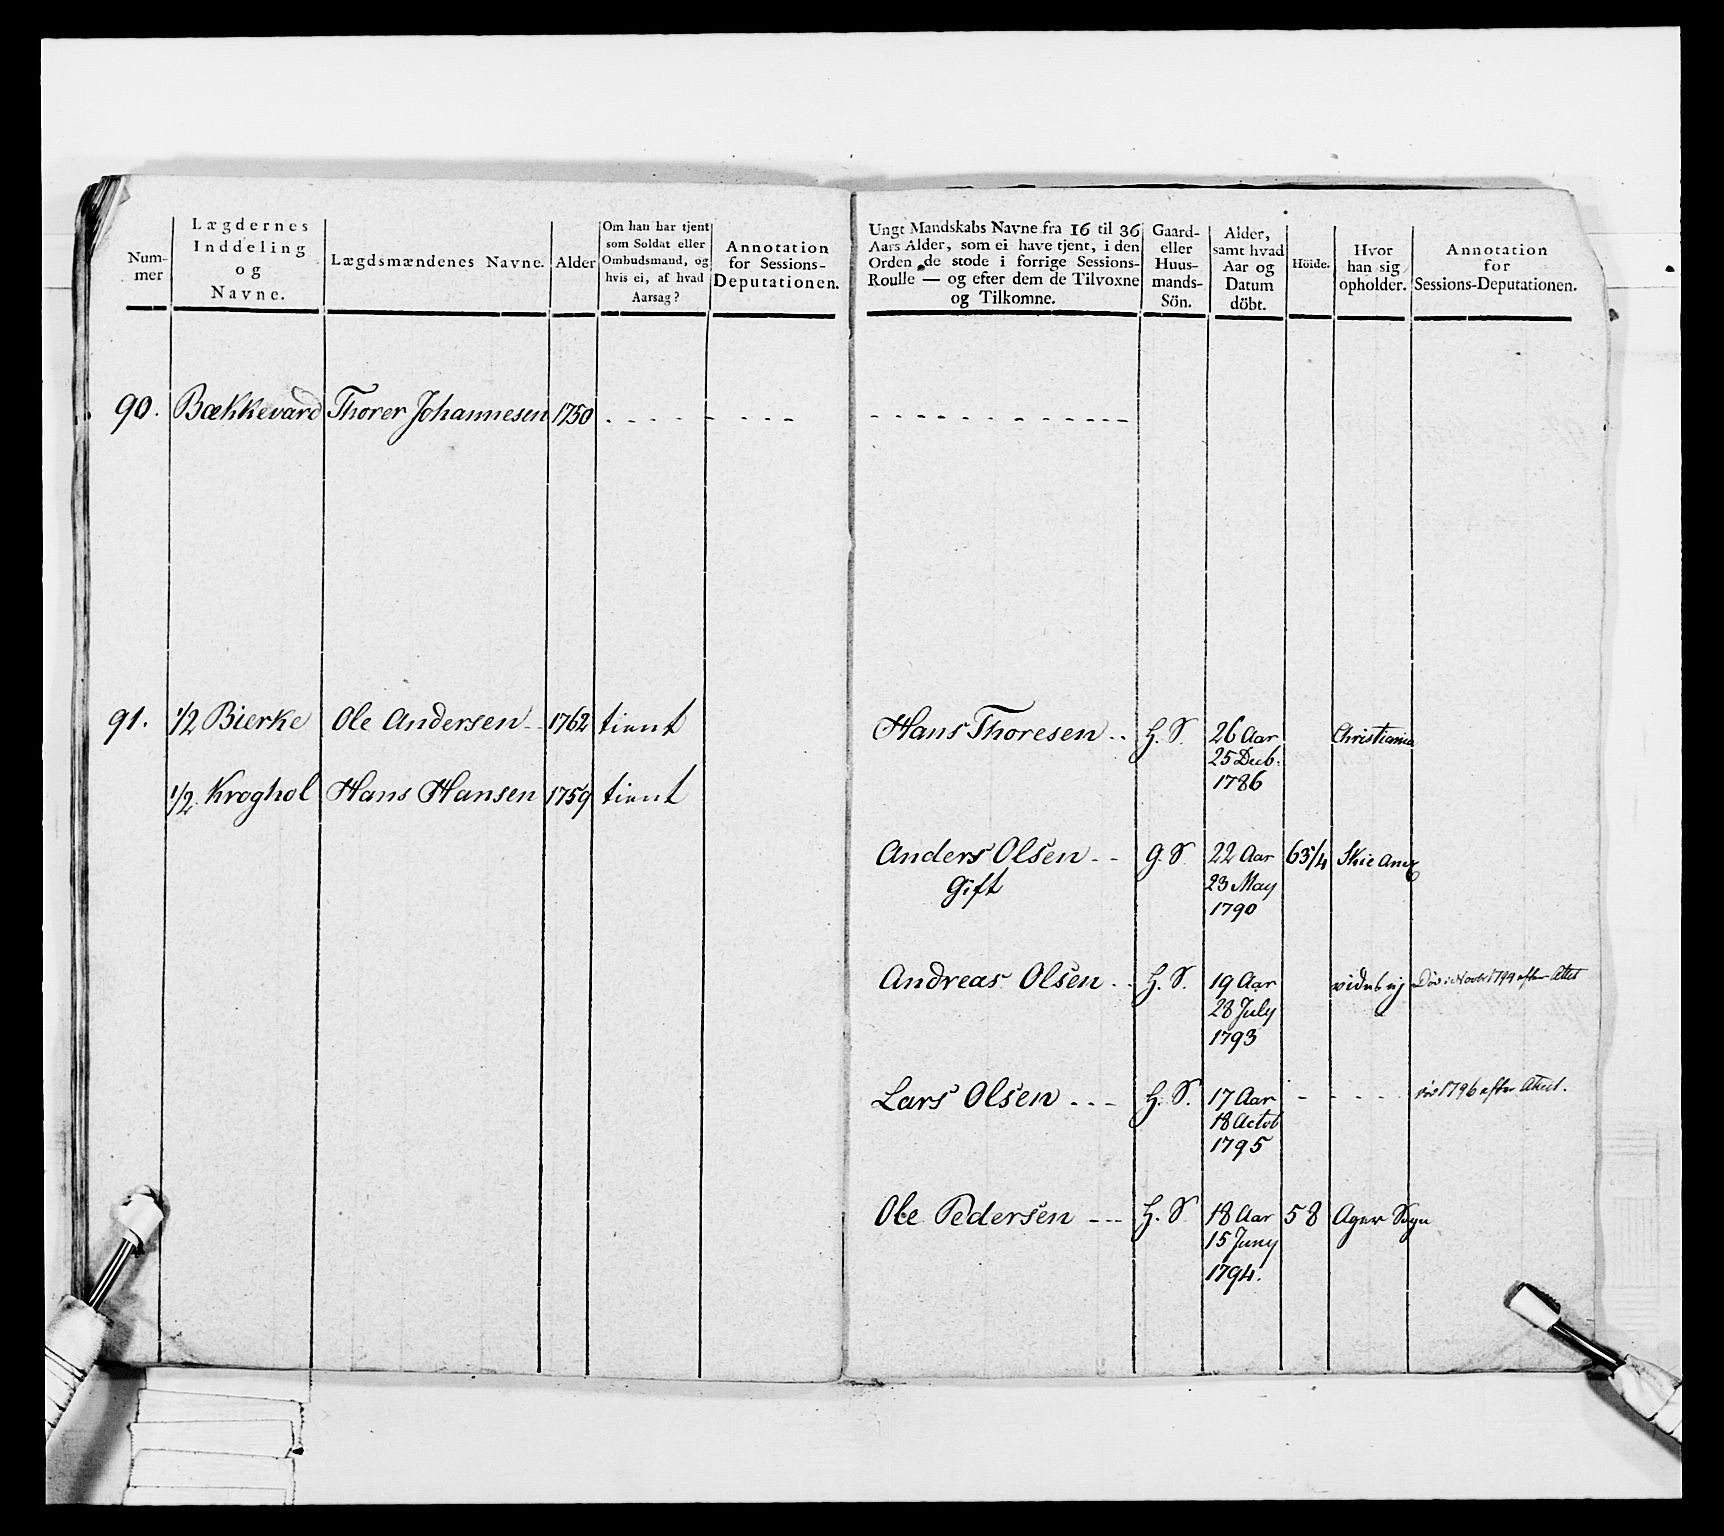 Num-
mer
Lægdernes
Inddeling
og
Navne.
Lægdsmændenes Navne.
Alder
Om han har tjent
som Soldat eller
Ombudsmand, og
hvis ei, af hvad
Aarsag?
Annotation
for Sessions-
Deputationen.
90. Bækkevard Thorer Johannesen 1750 - - - - - - - -
91. 1/2 Bierke Ole Andersen - 1762 tient
1/2 Kroghol Hans Hansen 1759 tient
Ungt Mandskabs Navne fra 16 til 36
Aars Alder, som ei have tjent, i den
Orden de stode i forrige Sessions-
Roulle — og efter dem de Tilvoxne
og Tilkomne.
Gaard-
eller
Huus-
mands-
Sön.
Alder,
samt hvad
Aar og
Datum
döbt.
Höide.
Hvor
han sig
opholder.
Annotation
for
Sessions-Deputationen.
- - - - - - - - - - - -
Hans Thoresen - - H. S. 26 Aar Christiania
25 Decb.
1786
Anders Olsen - - G. S. 22 Aar 63 1/4 Skie
Gift 23 May
1790
Andreas Olsen - - H. S. 19 Aar vides ej Död i 1799 efter Attest
28 July
1793
Lars Olsen - - - H. S. 17 Aar - - - - - död 1796 efter Attest.
18 Octob
1795
Ole Pedersen - - - H. S. 18 Aar 58 Ager Sogn
15 Juny
1794.